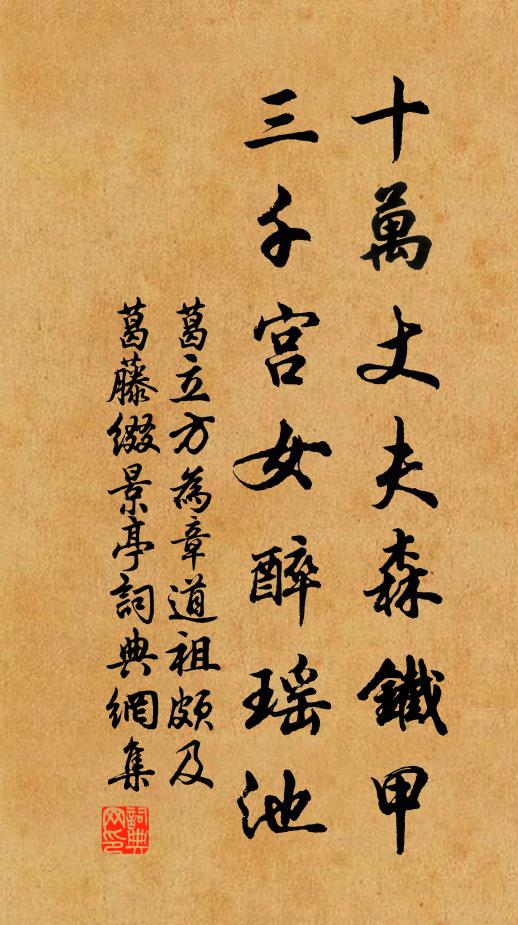 十萬丈夫森鐵甲
三千宮女醉瑶池
葛立方為章道祖頗及
葛藤綴景亭詞典網集
詞典网印